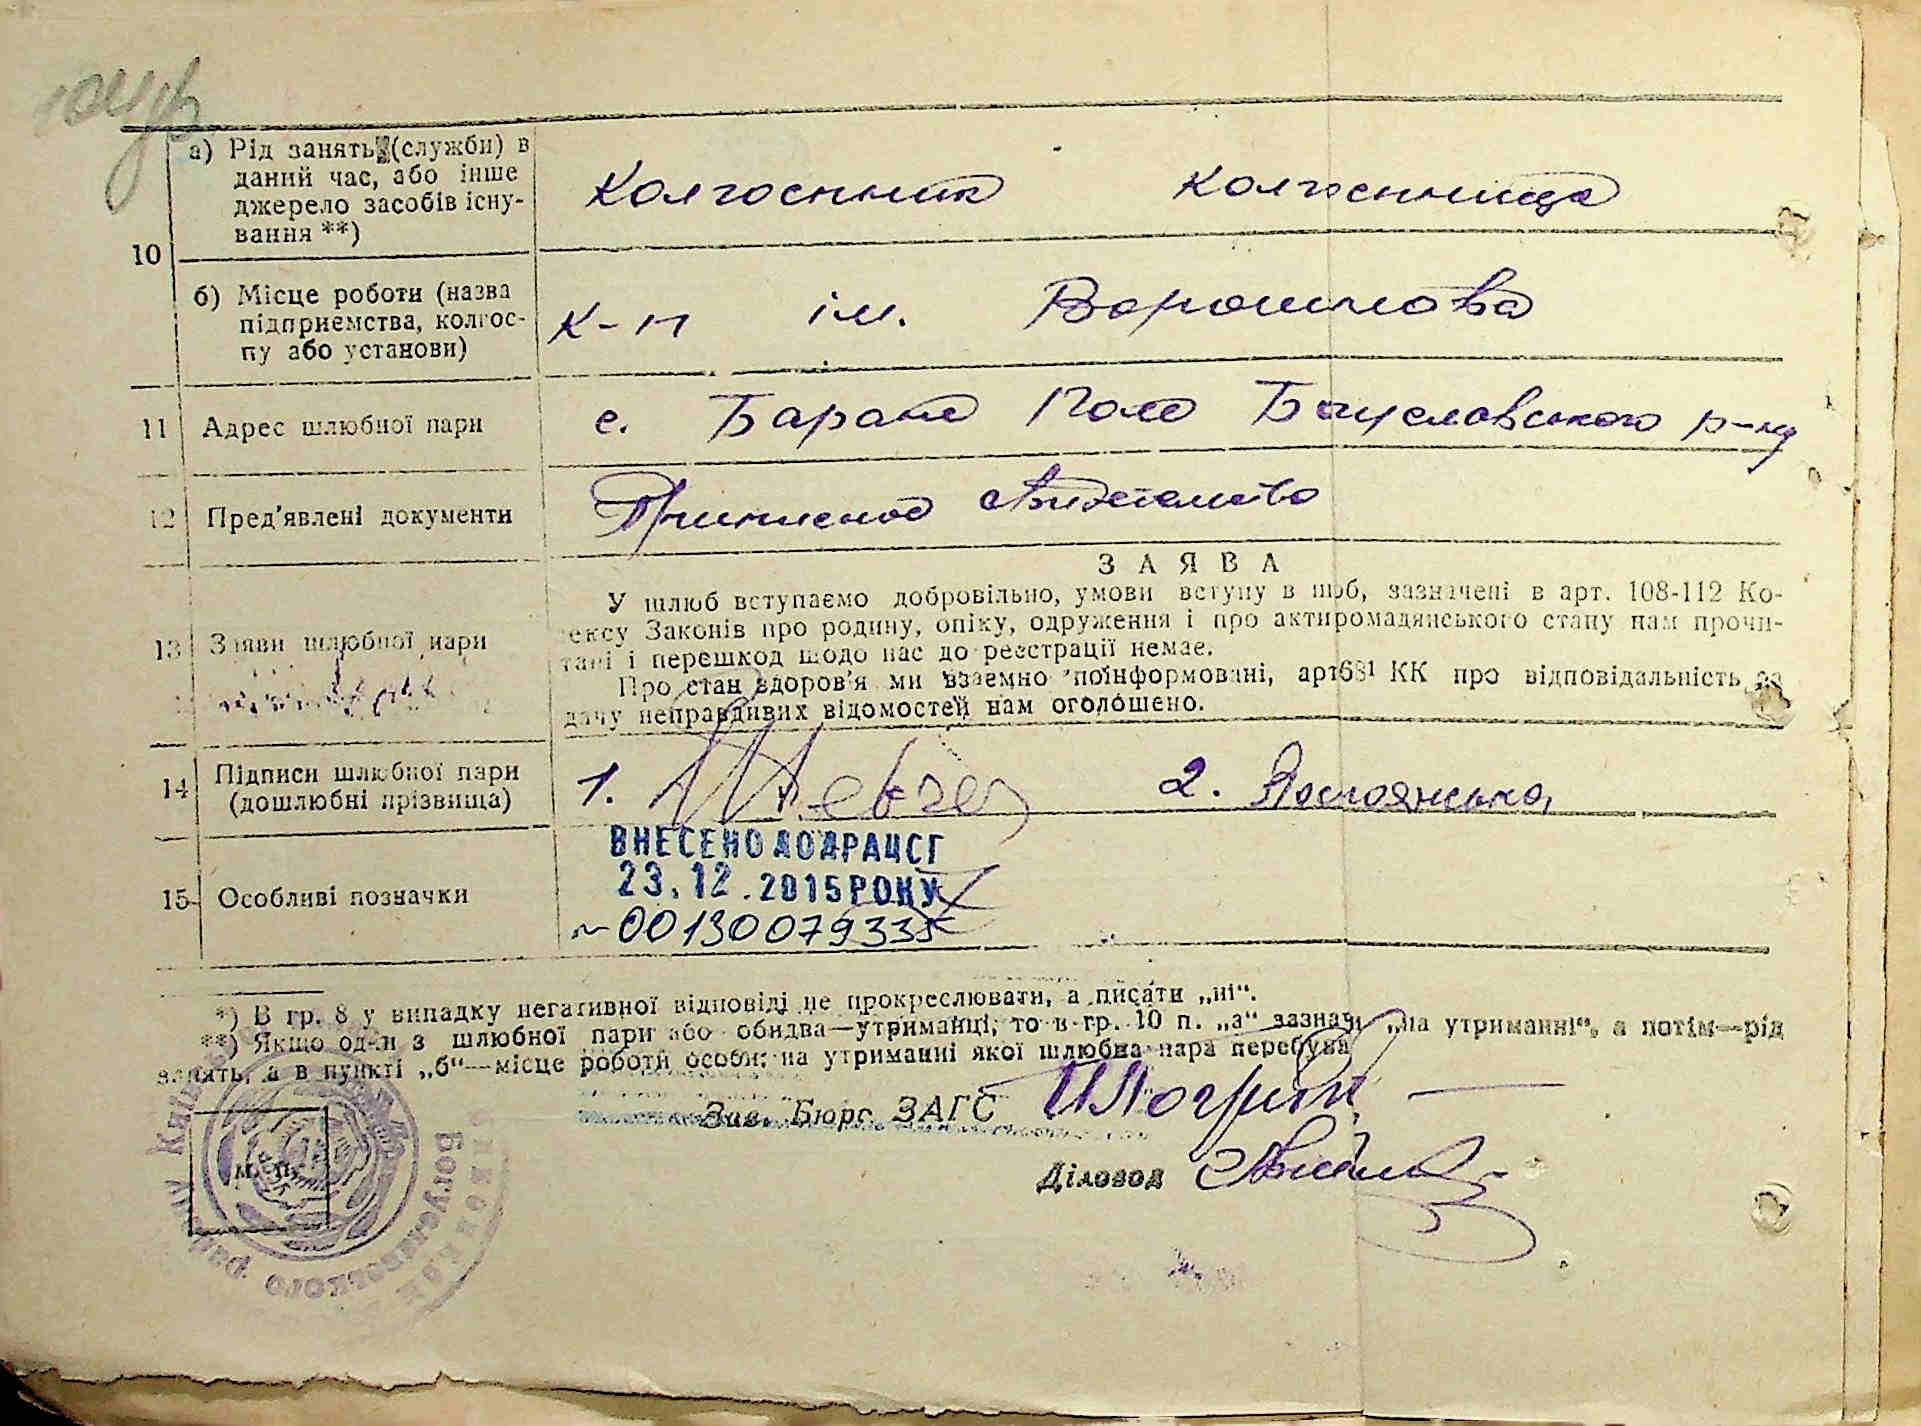 а) Рід занять (служби) в
даний час, або інше
джерело засобів існу-
вання **)
Колгоспник колгоспниця
10
б) Місце роботи (назва
підприємства, колгос-
пу або установи)
К-п ім. Ворошилова
11 Адрес шлюбної пари
с. Баране Поле Богуславського р-ну
12 Пред'явлені документи
Приписное свидетельство
ЗАЯВА
13 Заяви шлюбної пари
У шлюб вступаємо добровільно, умови вступу в шюб, зазначені в арт. 108-112 Ко-
ексу Законів про родину, опіку, одруження і про актиромадянського стану нам прочи-
тані і перешкод щодо нас до реєстрації немає.
Про стан здоров'я ми взаємно поінформовані, арт68¹ КК про відповідальність за
дачу неправдивих відомостей нам оголошено.
14 Підписи шлюбної пари
(дошлюбні прізвища)
1. 2. Постоянська
15 Особливі позначки
ВНЕСЕНО ДО ДРАЦСГ
23.12.2015 РОКУ
~00130079335
*) В гр. 8 у випадку негативної відповіді не прокреслювати, а писати „ні“.
**) Якщо один з шлюбної пари або обидва—утриманці, то в гр. 10 п. „а“ зазнач „на утриманні“, а потім—рід
занять, а в пункті „б“—місце роботи особи, на утриманні якої шлюбна пара перебува
Зав. Бюро ЗАГС
Діловод
м. п.
Богуславського району